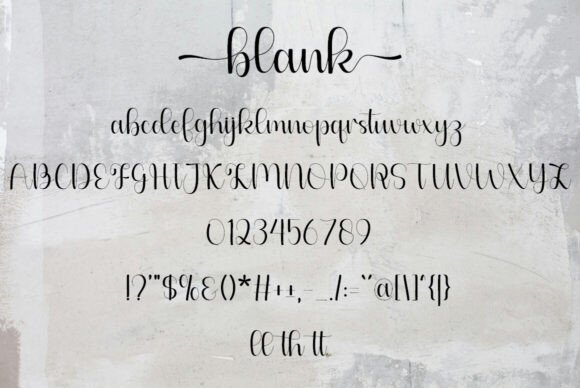 blank
abcdefghijklmnopqrstuvwxyz
ABCDEFGHIJKLMNOPQRSTUVWXYZ
0123456789
!?'"$%&()*#+±,-_./:=``@[\]'{|}
ll th tt